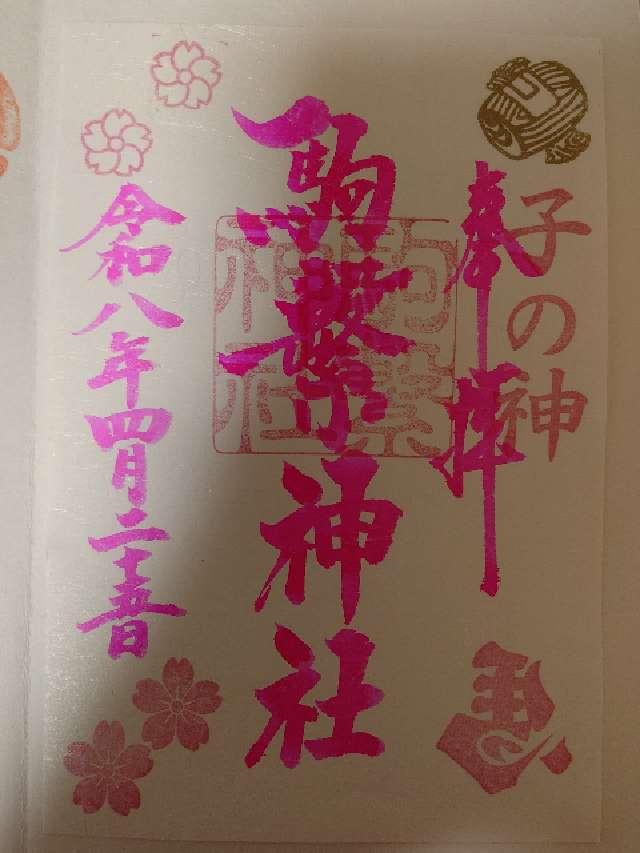 子の神
奉拝
駒繋神社
駒繋
神社
令和八年四月二十五日
馬